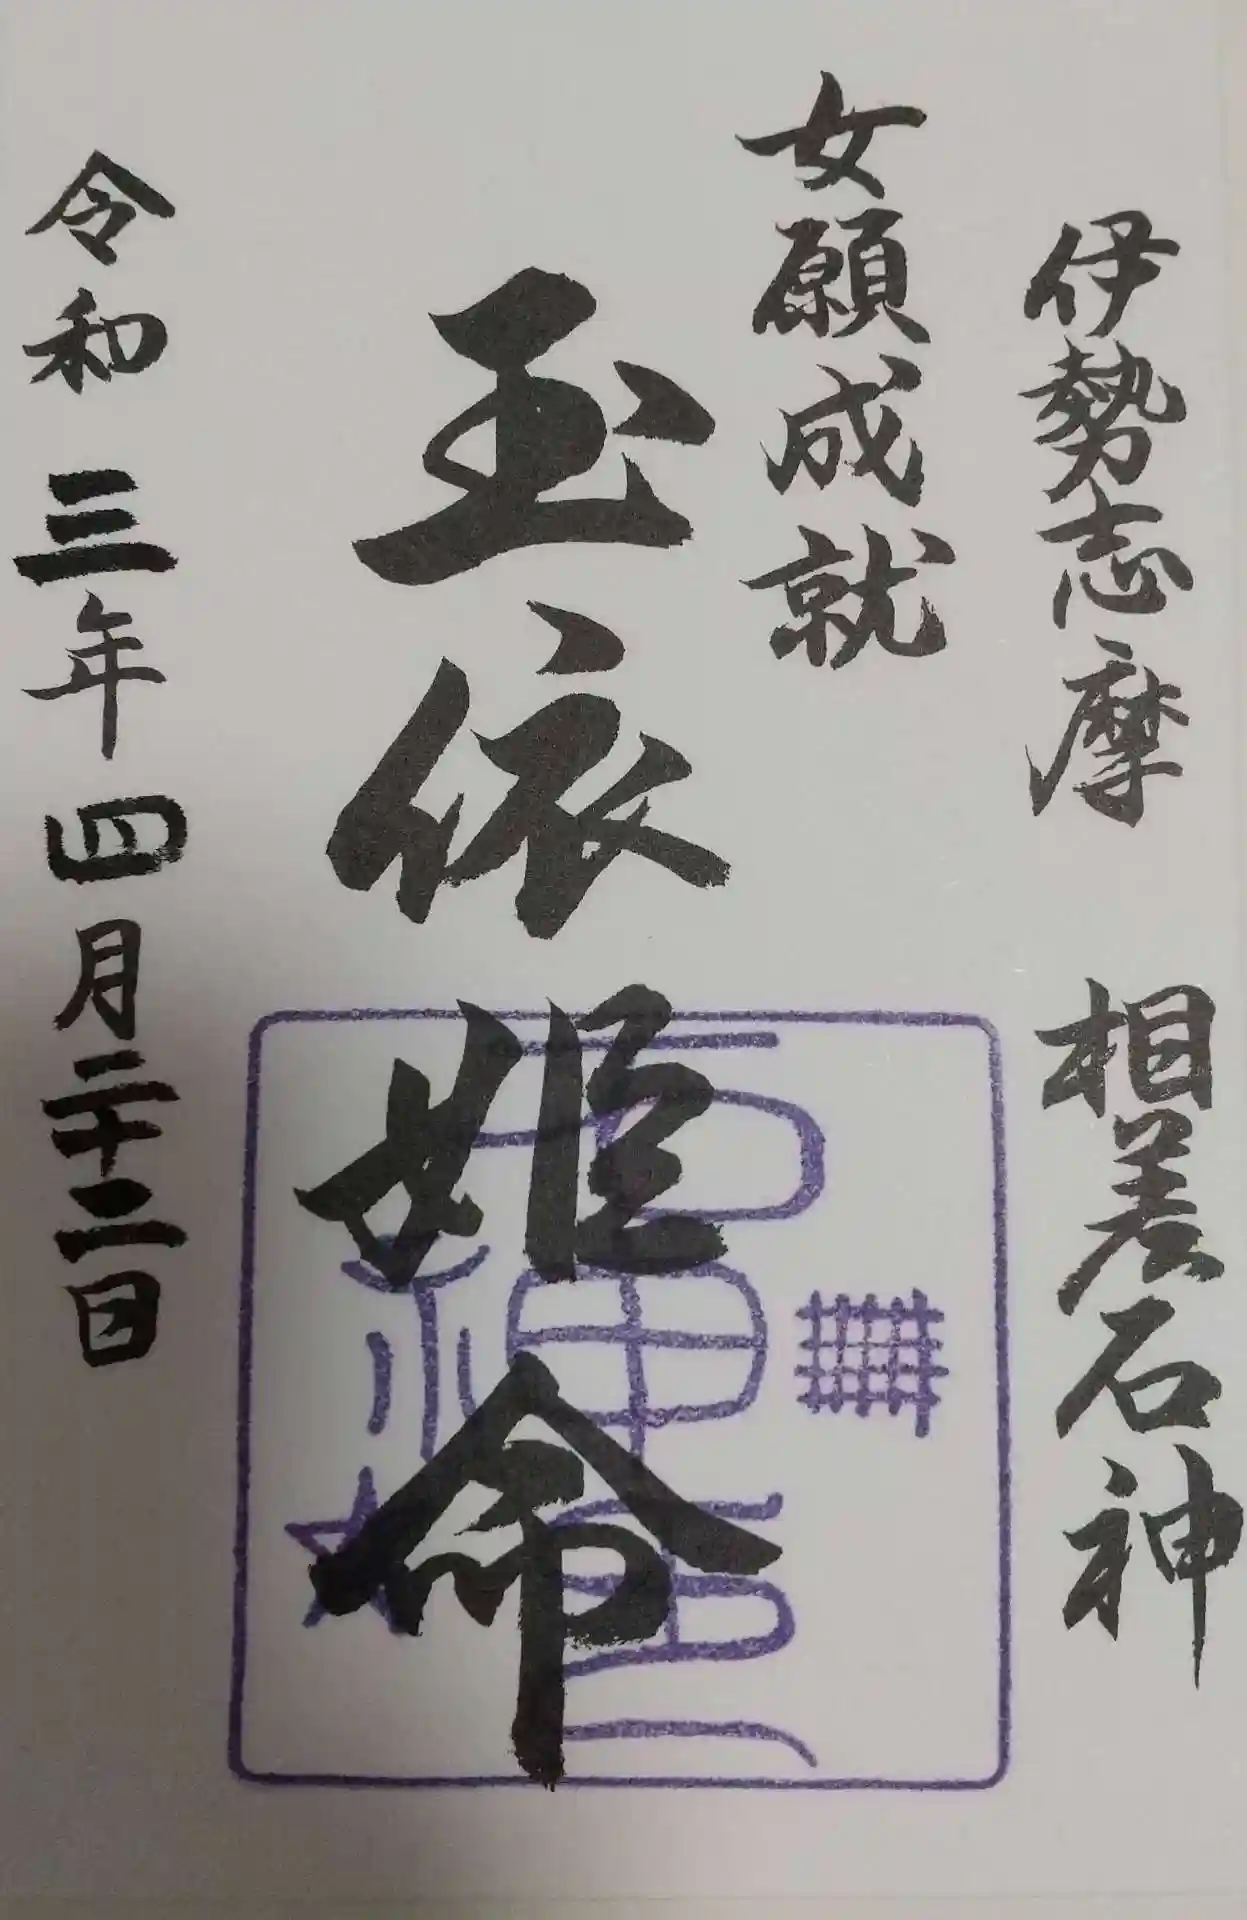 伊勢志摩 相差石神
女願成就
玉依姫命
令和三年四月二十二日
石神